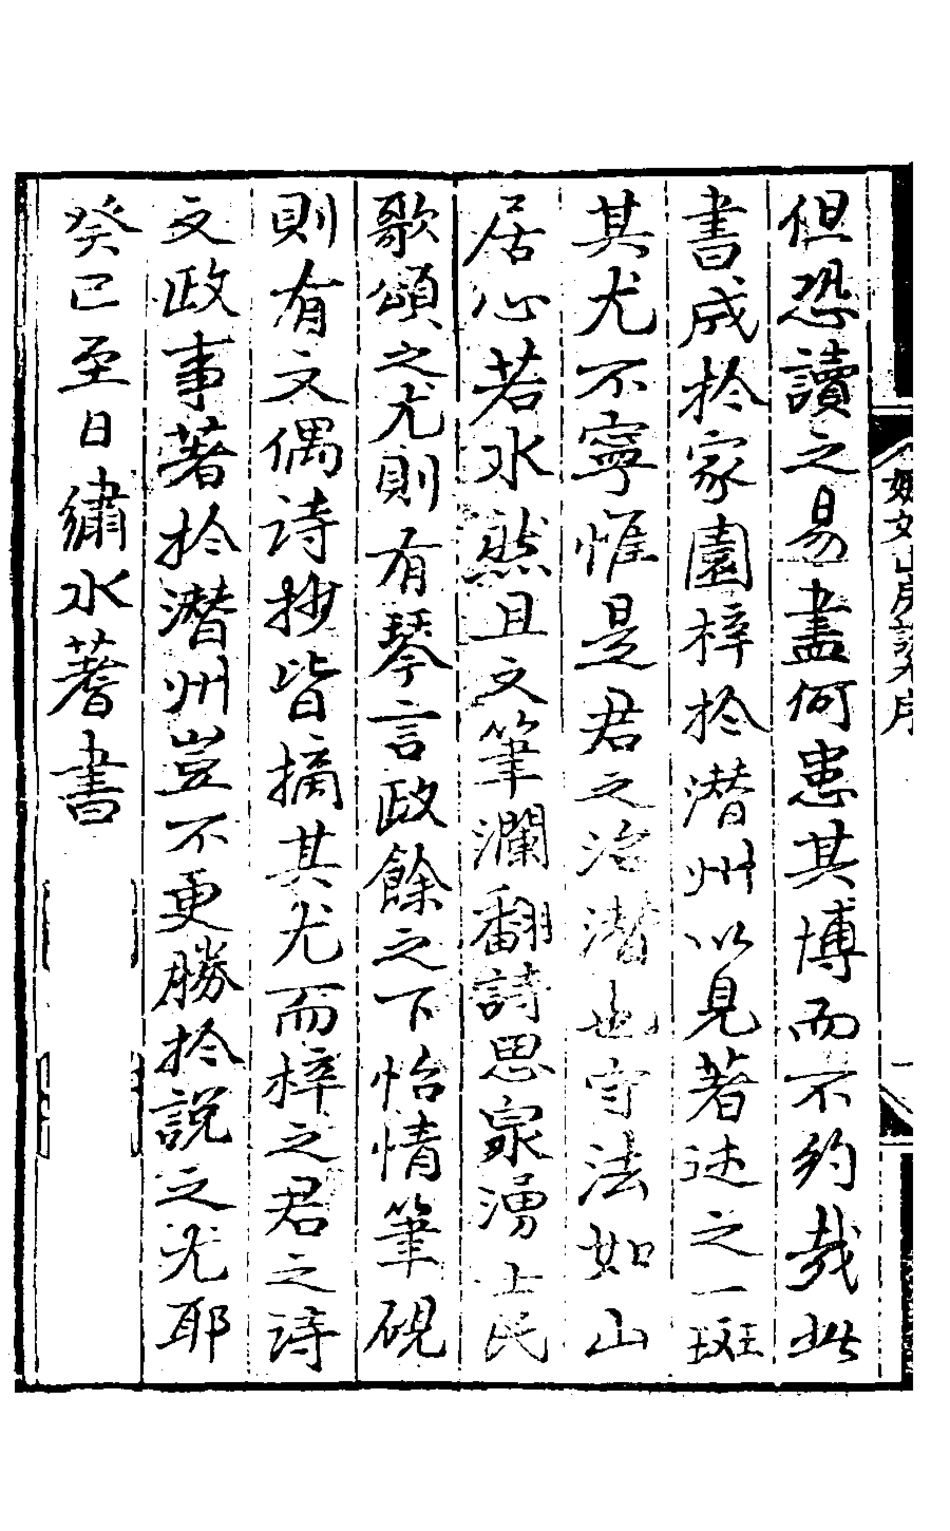 但恐讀之易盡何患其博而不約哉此
書成於家園梓於潛州以見著述之一斑
其尤不寧惟是君之治潛也守法如山
居心若水然且文筆瀾翻詩思泉湧士民
歌頌之尤則有琴言政餘之下怡情筆硯
則有文偶詩抄皆摘其尤而梓之君之詩
文政事著於潛州豈不更勝於說之尤耶
癸巳至日繡水著書
文山房說尤序
一